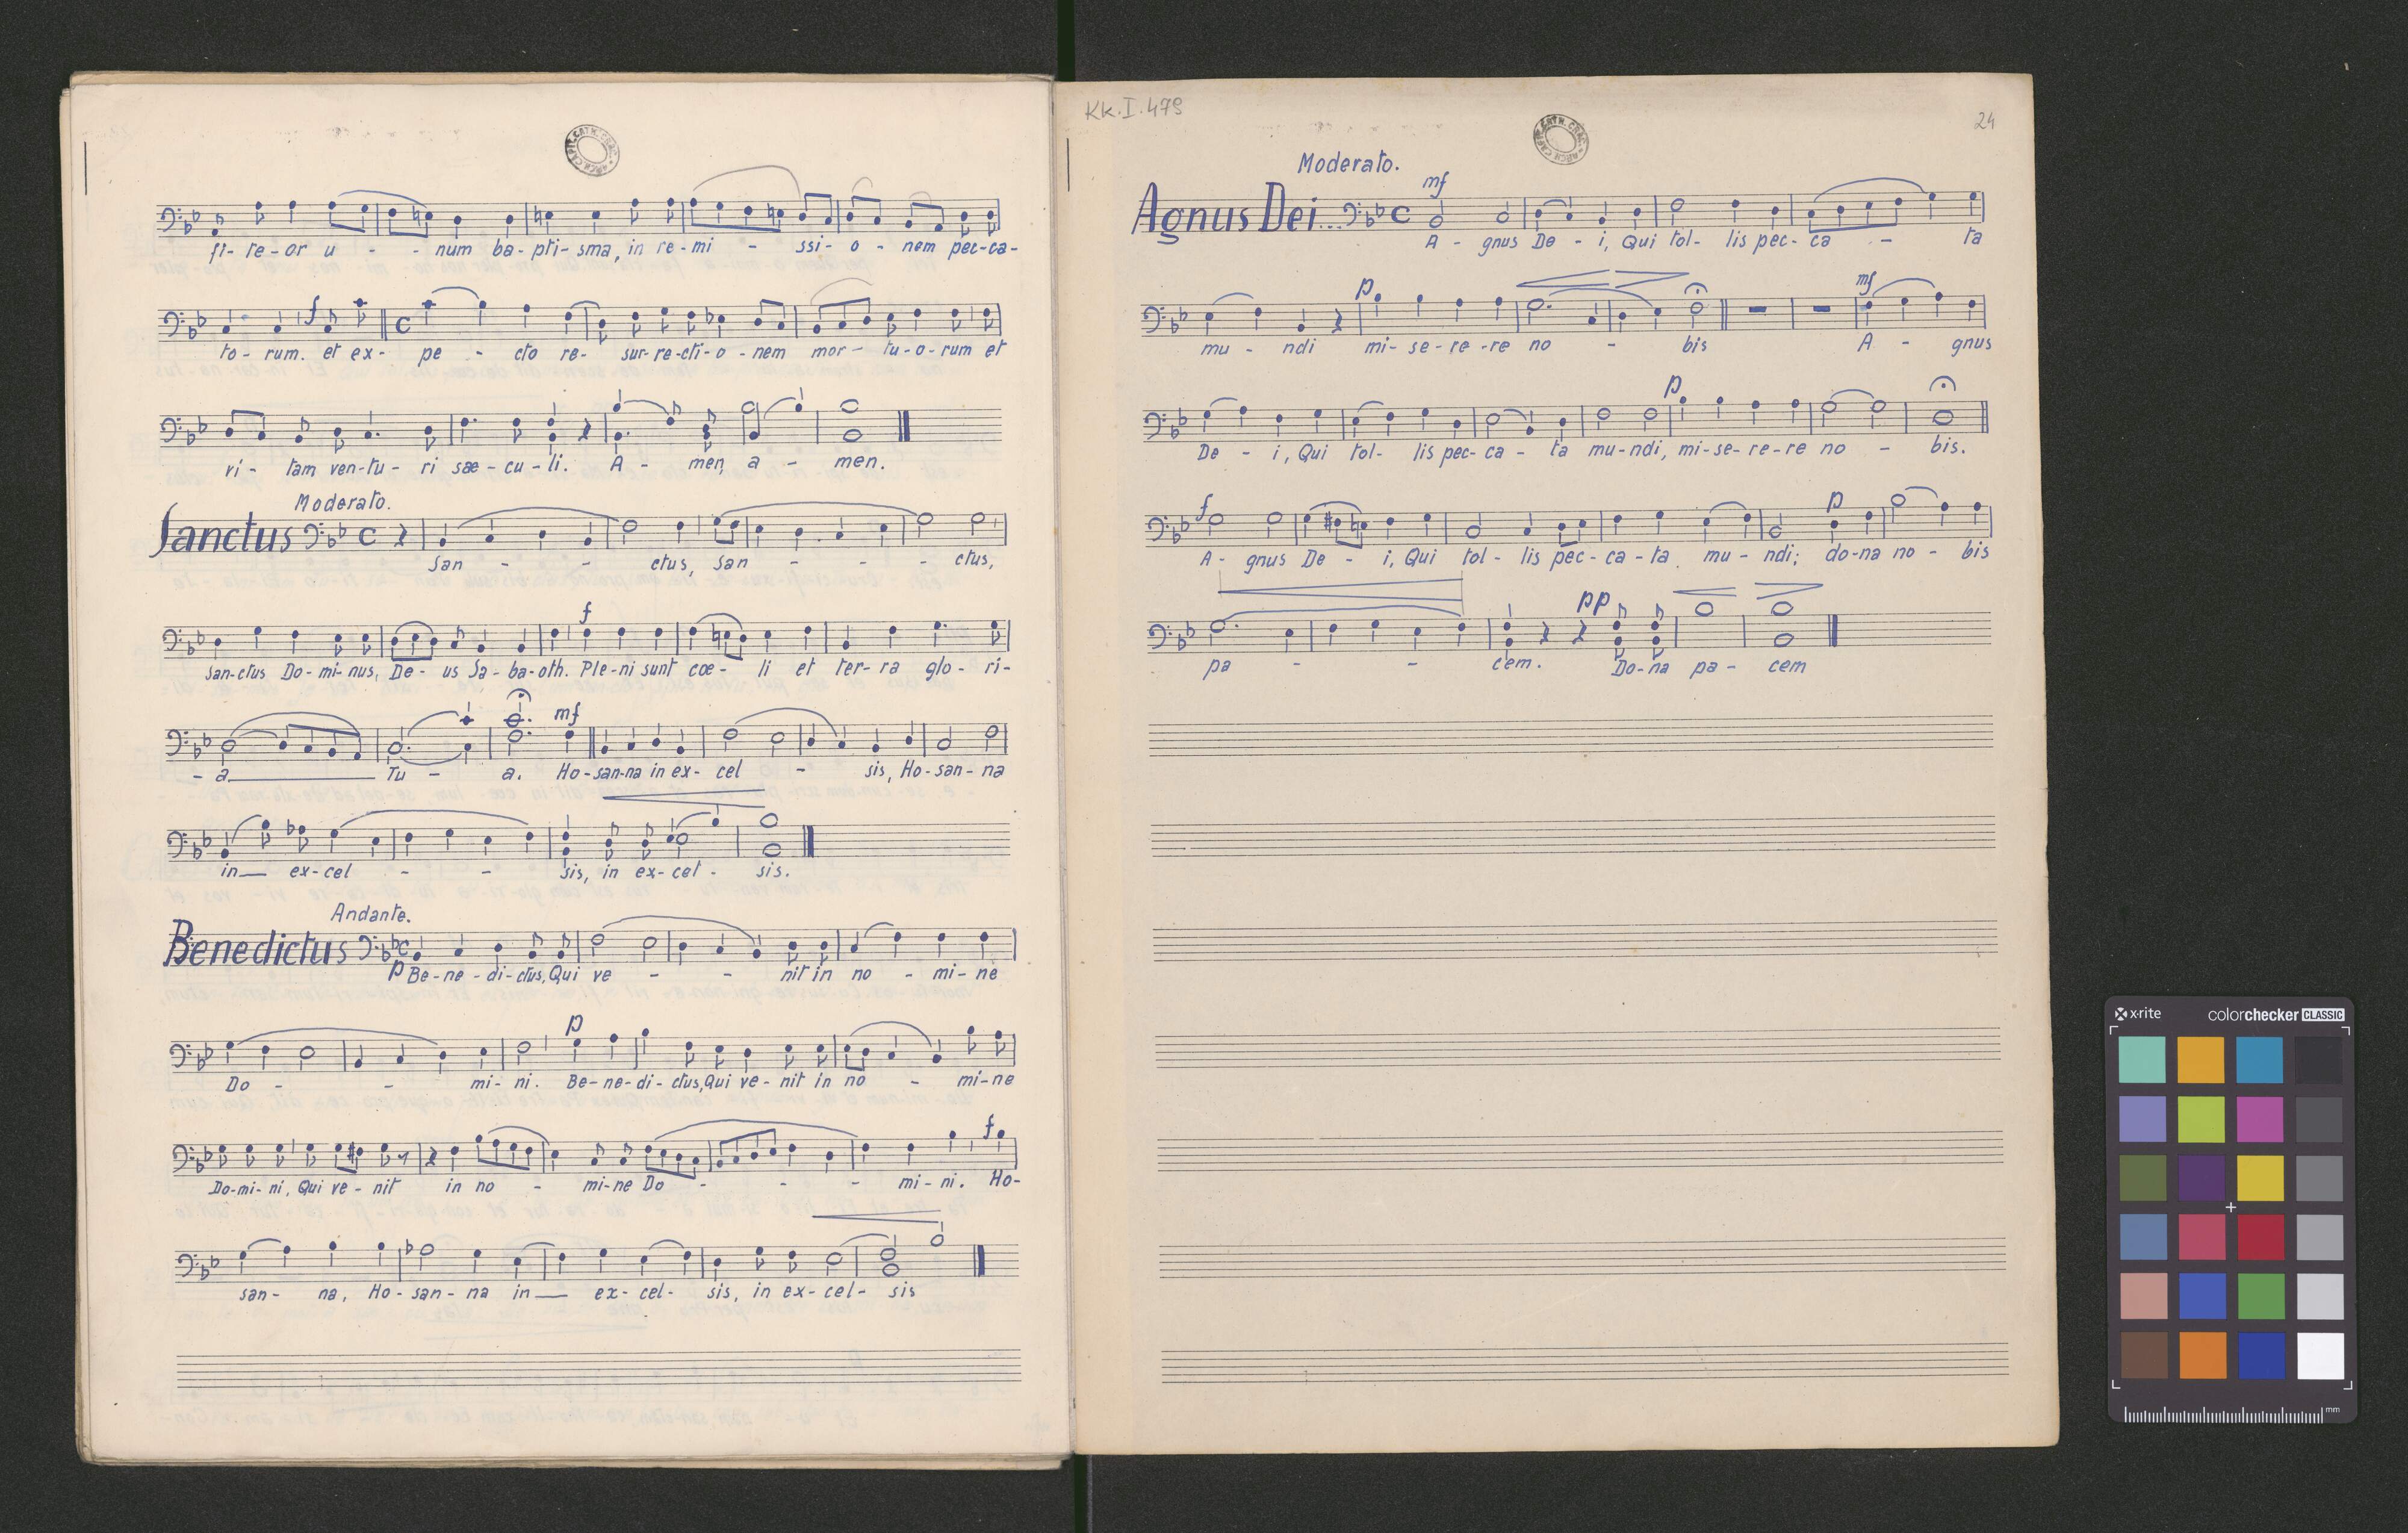 fi-te-or u - - num ba-pti-sma, in re-mi - ssi-o-nem pec-ca-
f
to-rum. et ex-pe - cto re- sur-re-cti-o-nem mor-tu-o-rum et
vi-tam ven-tu-ri sæ-cu-li. A - men, a - men.
Moderato.
Sanctus C
San - - ctus, San - - - ctus,
f
San-ctus Do-mi-nus, De-us Sa-ba-oth. Ple-ni sunt cœ-li et ter-ra glo-ri-
mf
-a Tu - a. Ho-san-na in ex-cel - sis, Ho-san-na
in ex-cel - - sis, in ex-cel-sis.
Andante.
Benedictus C
p Be-ne-di-ctus, Qui ve - - nit in no-mi-ne
p
Do - - mi-ni. Be-ne-di-ctus, Qui ve-nit in no - mi-ne
f
Do-mi-ni, Qui ve-nit in no - mi-ne Do - - - mi-ni. Ho-
san-na, Ho-san-na in ex-cel-sis, in ex-cel-sis
KK.I.479
24
ARCH.CAPIT.CATH.CRAC.
Moderato.
mf
Agnus Dei... C
A - gnus De - i, Qui tol-lis pec-ca - ta
p mf
mu - ndi mi-se-re-re no - bis A - gnus
p
De - i, Qui tol-lis pec-ca-ta mu-ndi, mi-se-re-re no - bis.
f p
A-gnus De - i, Qui tol-lis pec-ca-ta mu-ndi; do-na no-bis
pp
pa - - cem. Do-na pa-cem
x-rite colorchecker CLASSIC
mm